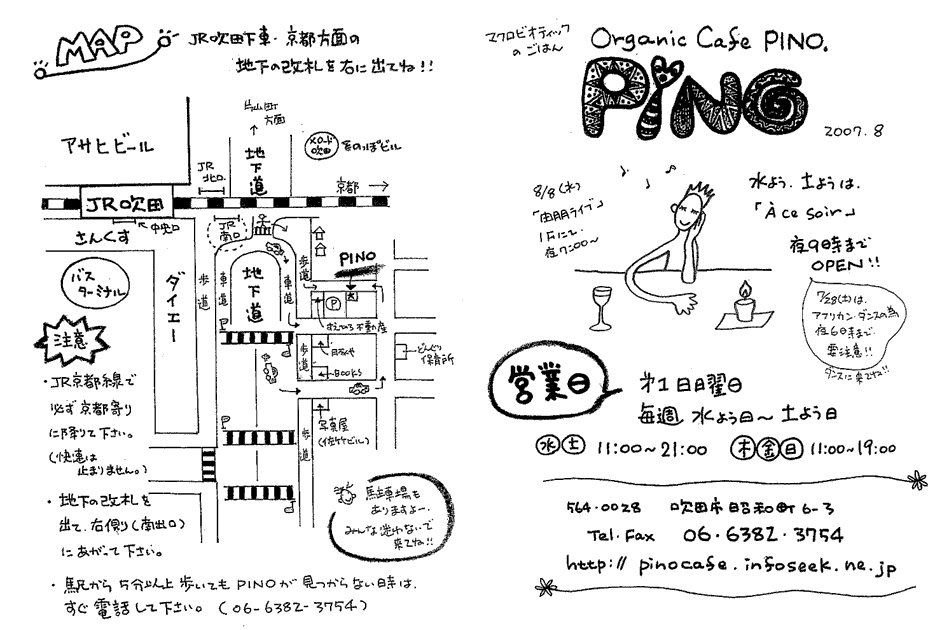 MAP
JR吹田下車・京都方面の
地下の改札を右に出てね!!
片山町
方面
アサヒビール
地下道
メロード
吹田
JR
北口
京都
JR吹田
中央口
さんくす
JR
南口
バス
ターミナル
ダイエー
歩道
車道
地下道
車道
歩道
PINO
P
不動産
歩道
BOOKS
どんぐり
保育所
写真屋
(佐竹ビル)
歩道
注意
・JR京都線で
必ず京都寄り
に降りて下さい。
(快速は
止まりません。)
・地下の改札を
出て、右側り(南出口)
にあがって下さい。
駐車場も
ありますよー。
みんな迷わないで
来てね!!
・駅から5分以上歩いてもPINOが見つからない時は、
すぐ電話して下さい。(06-6382-3754)
マクロビオティック
のごはん
Organic Cafe PINO.
PiNO
2007.8
8/8(水)
1Fにて
夜7:00〜
水よう、土ようは、
「À ce soir」
夜9時まで
OPEN!!
7/28(土)は、
アフリカン・ダンスの為
夜6日まで
要注意!!
ダンスに来てね!!
営業日
第1日曜日
毎週 水よう日〜土よう日
水 土 11:00~21:00 木 金 日 11:00~19:00
564-0028 吹田市昭和町6-3
Tel. Fax 06・6382・3754
http://pinocafe.infoseek.ne.jp